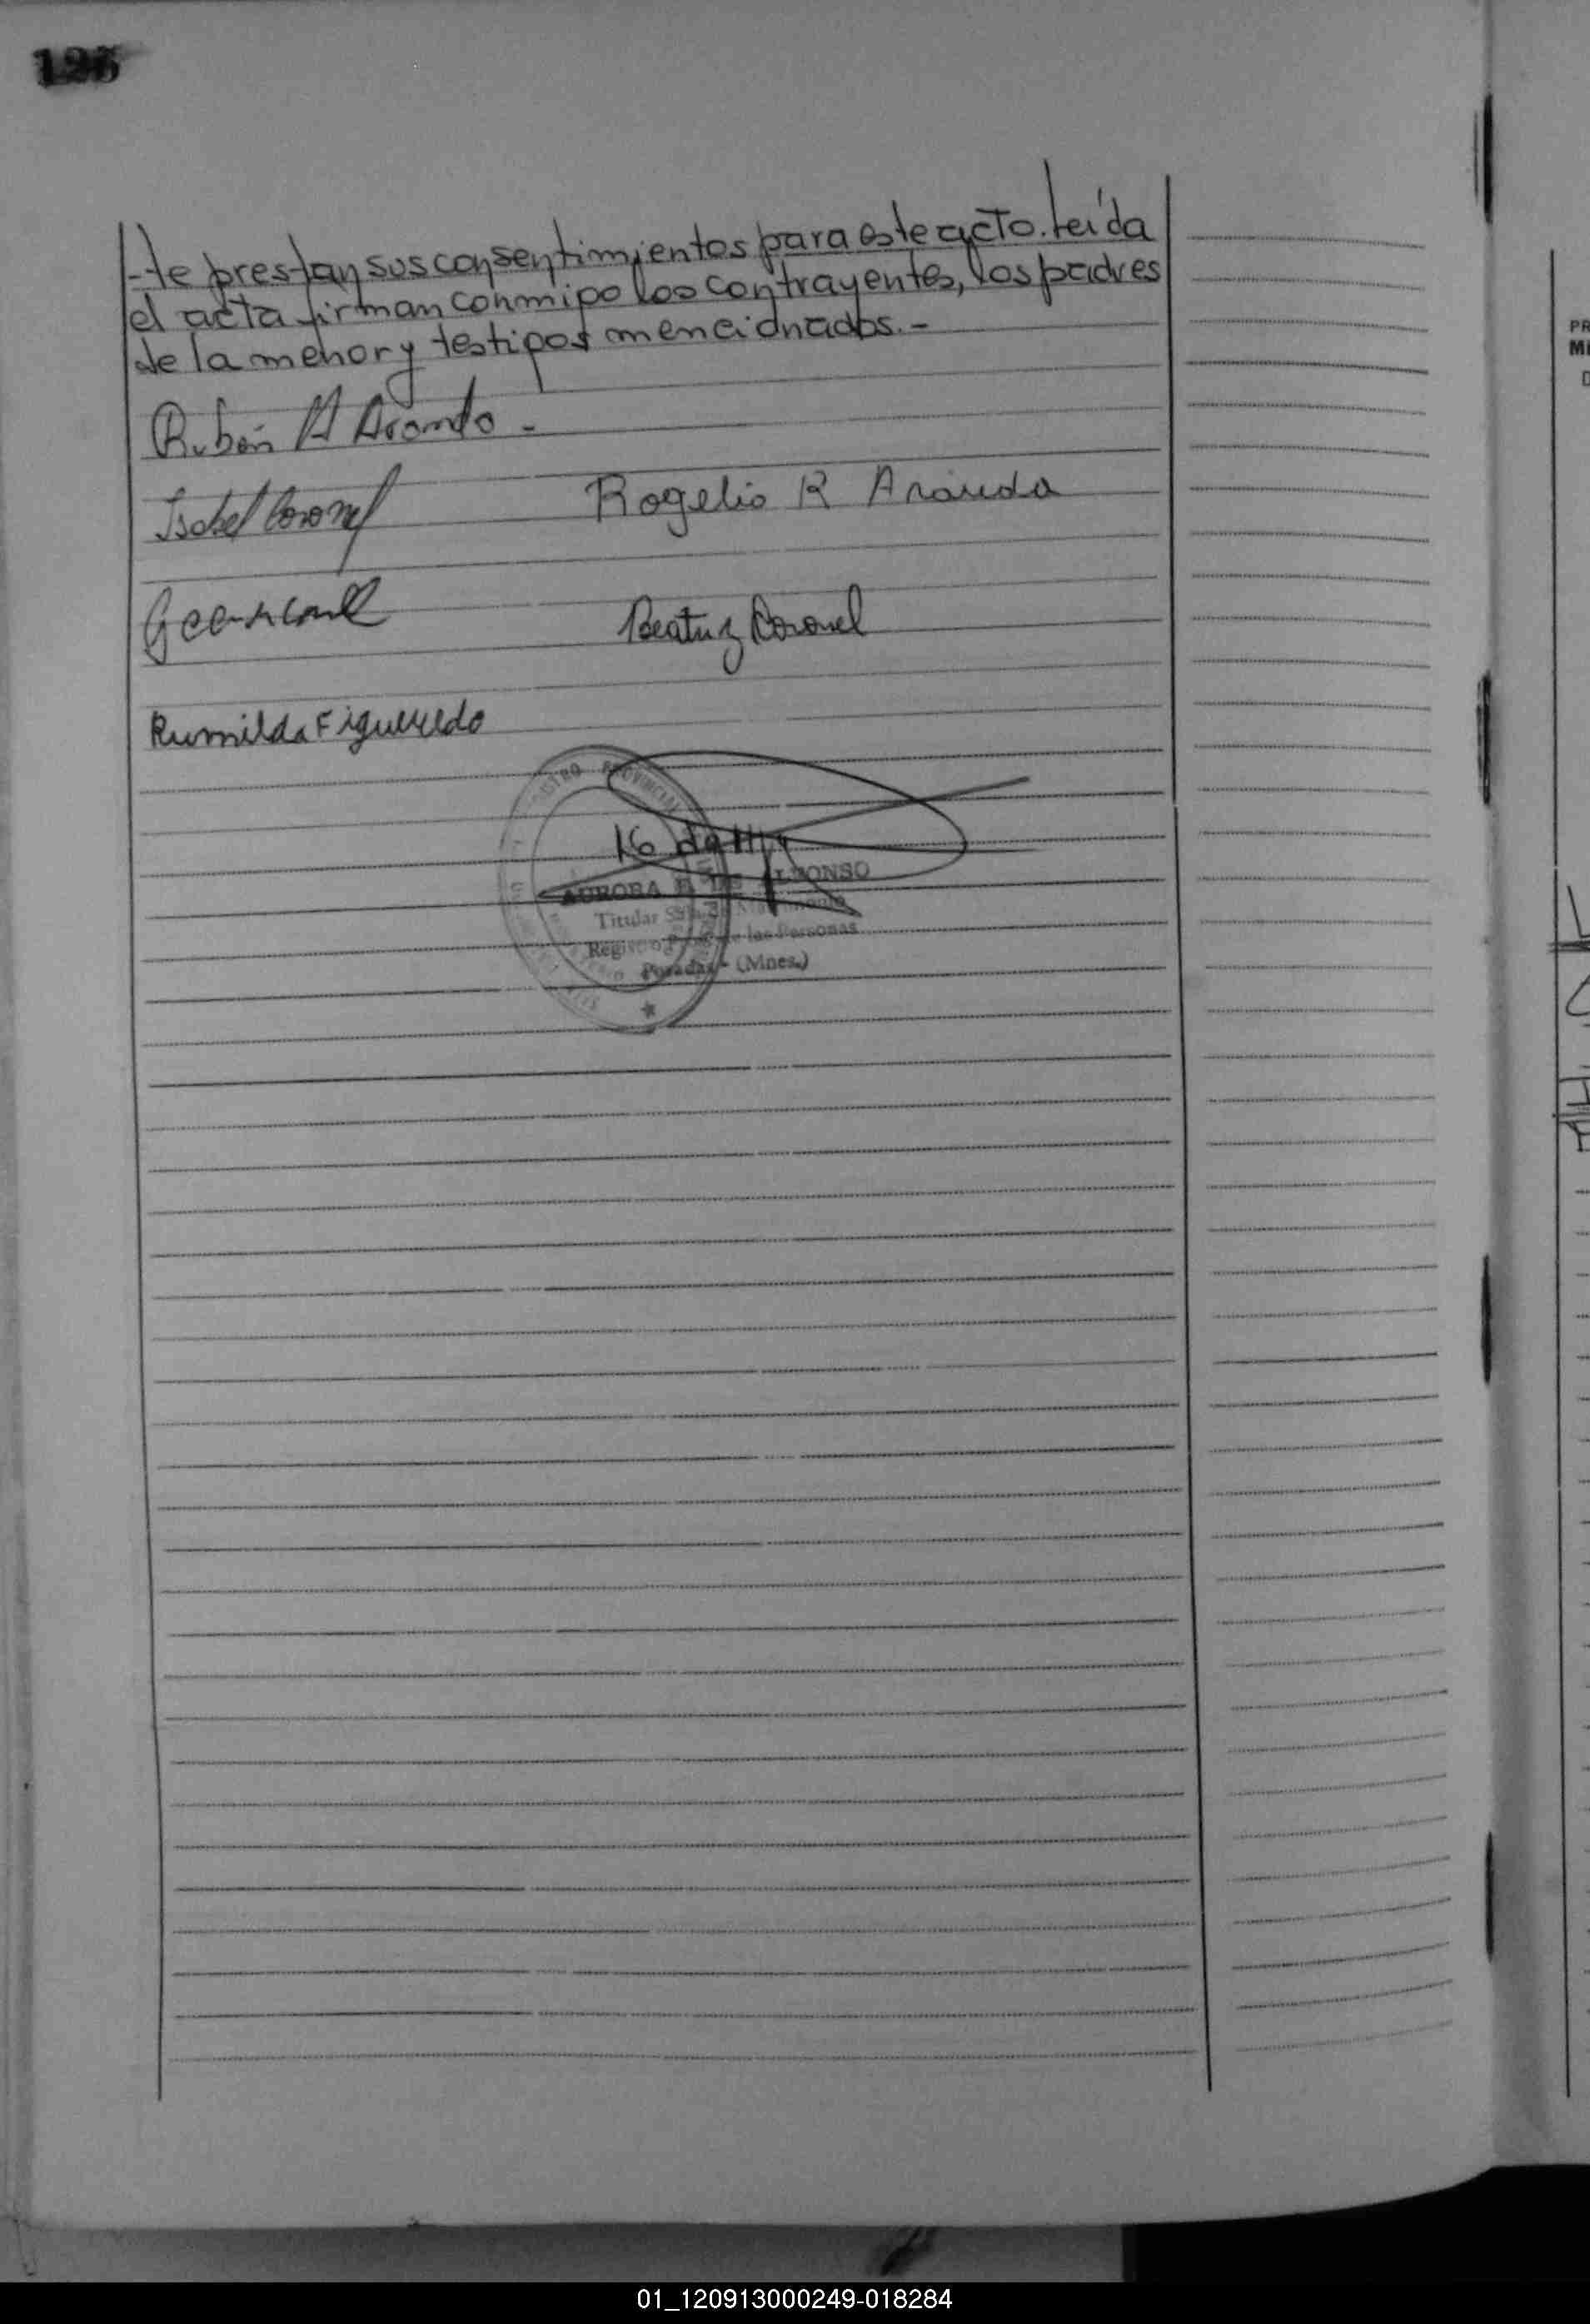 -te prestan sus consentimientos para este acto. Leída
el acta firman conmigo los contrayentes, los padres
de la menor y testigos mencionados.-
Rubén A Aranda.
Isabel Coronel
Rogelio R Aranda
Beatriz Coronel
Rumilda Figueredo
REGISTRO PROVINCIAL
AURORA DE ALFONSO
Titular
Registro de las Personas
Posadas - (Mnes.)
PR
MI
01_120913000249-018284